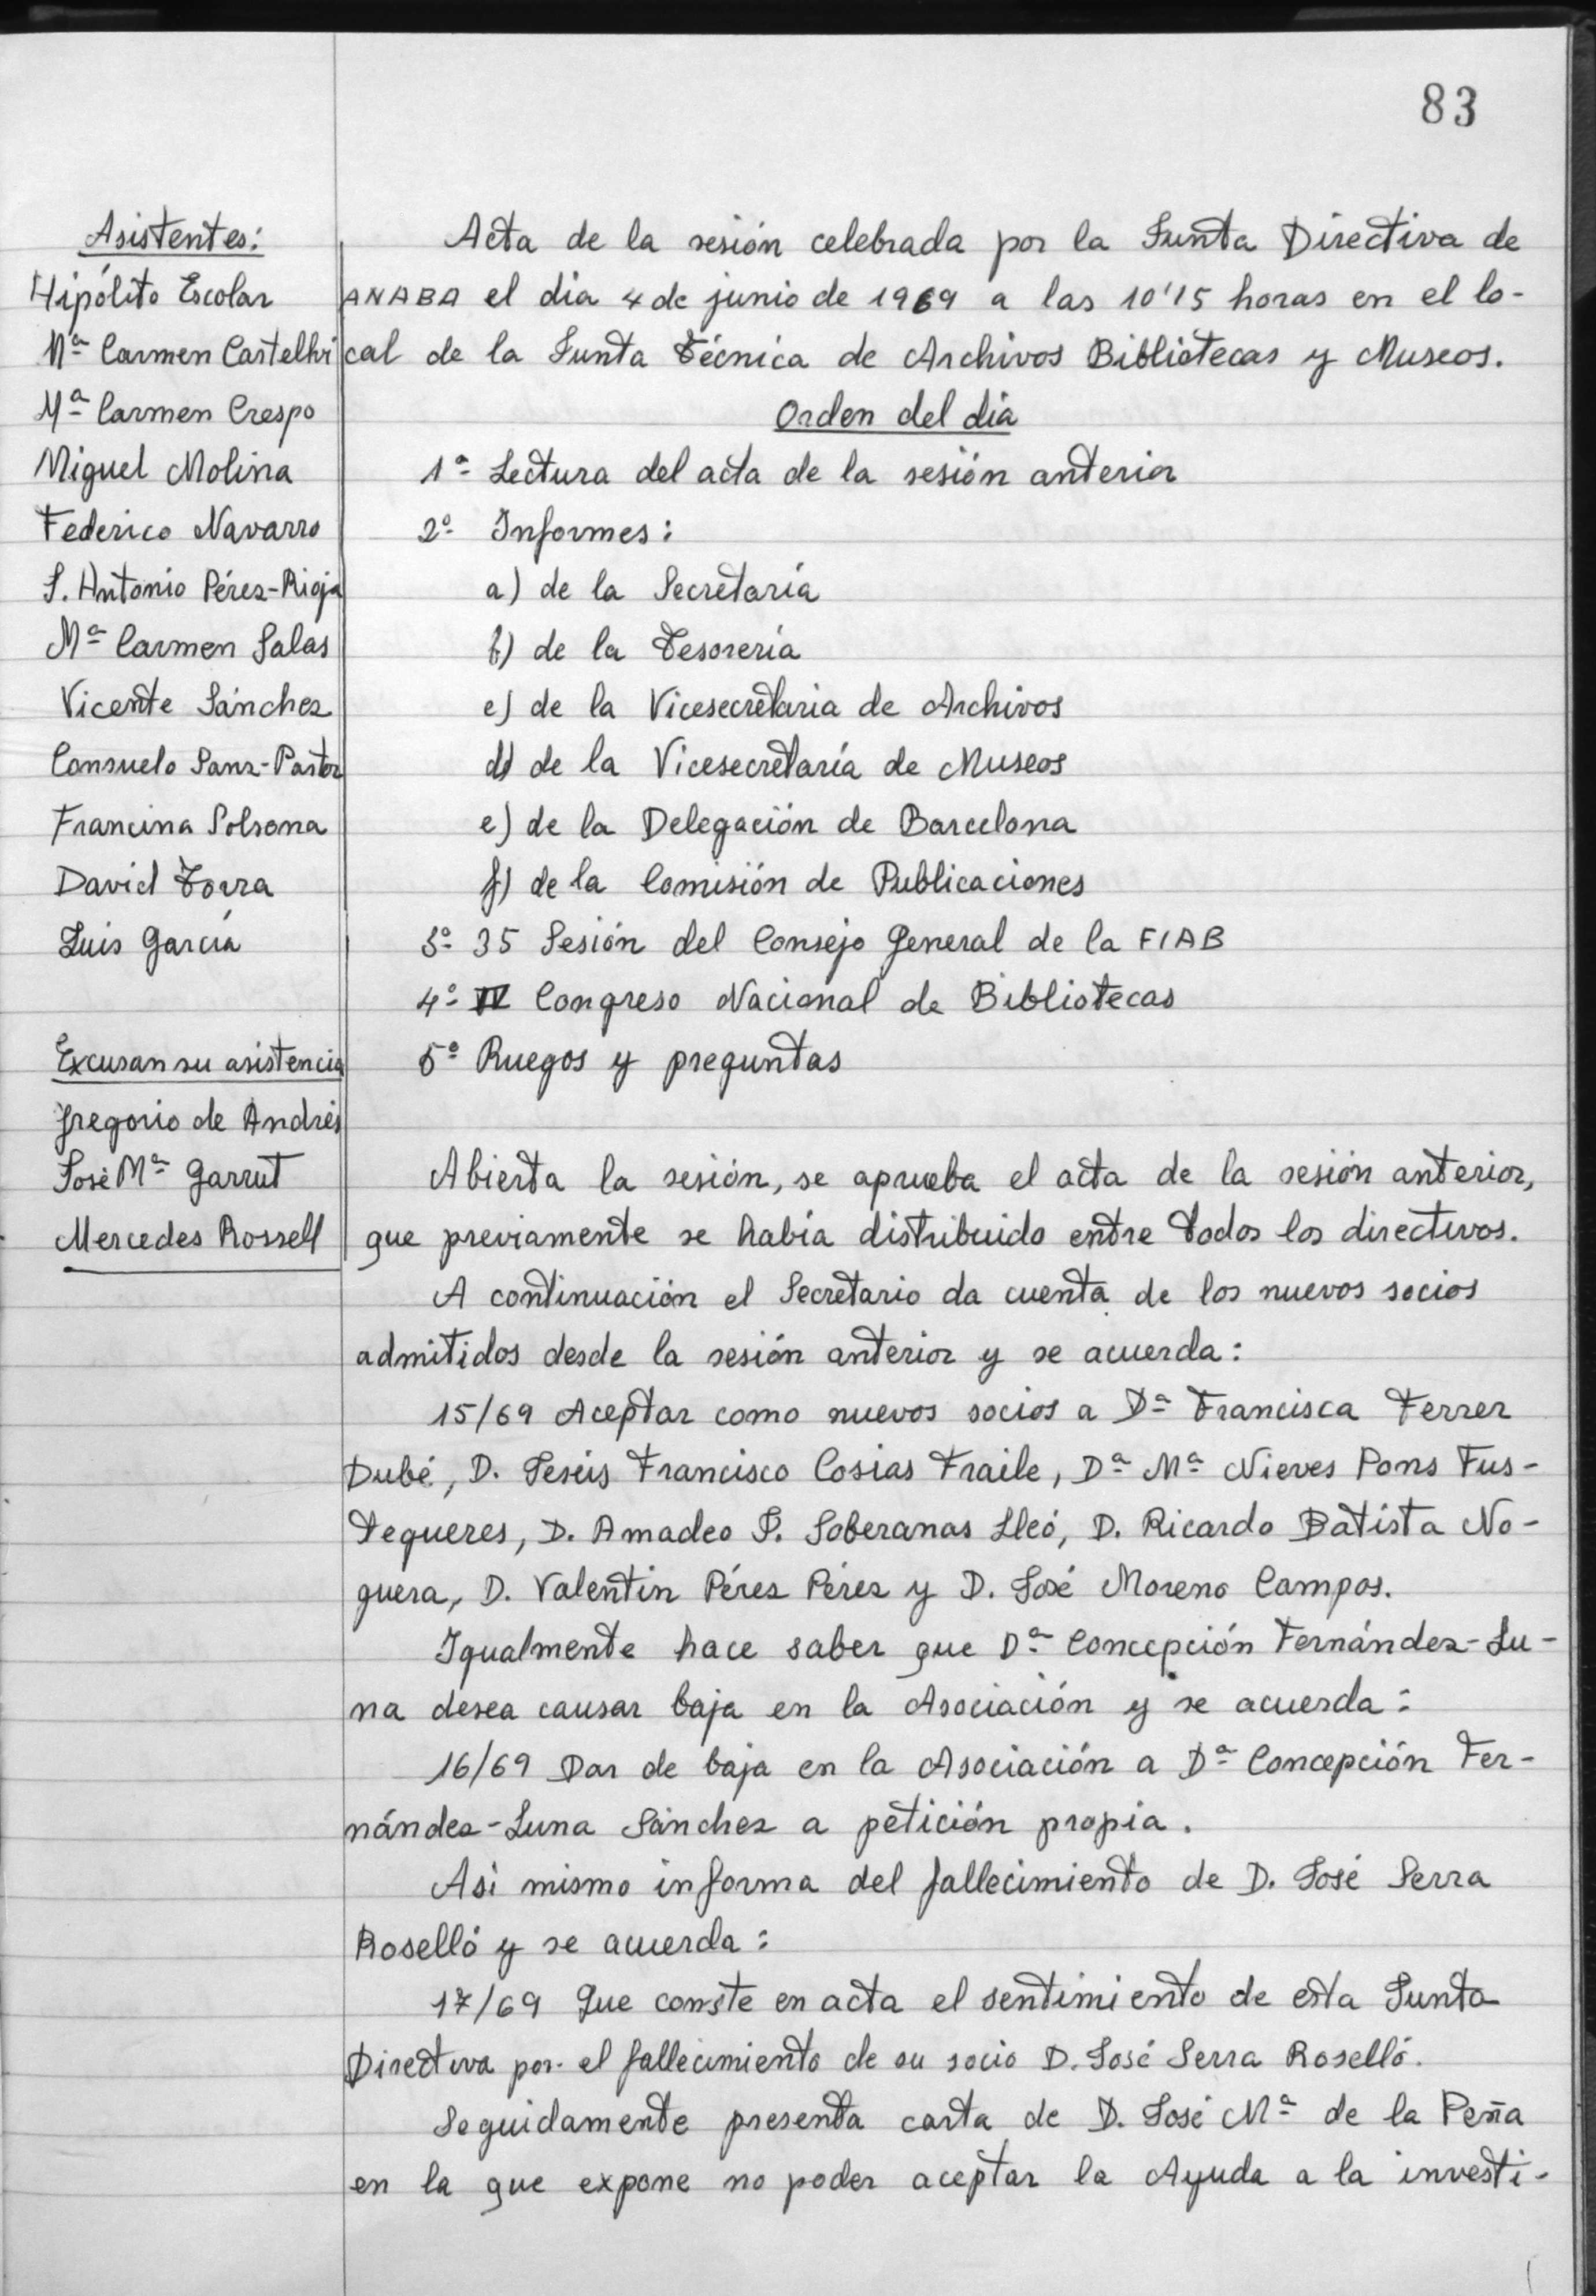 83
Asistentes:
Hipólito Escolar
Mª Carmen Castelhi
Mª Carmen Crespo
Miguel Molina
Federico Navarro
J. Antonio Pérez-Rioja
Mª Carmen Salas
Vicente Sánchez
Consuelo Sanz-Pastor
Francina Solsona
David Torra
Luis García
Excusan su asistencia
Gregorio de Andrés
José Mª Garrut
Mercedes Rossell
Acta de la sesión celebrada por la Junta Directiva de
ANABA el dia 4 de junio de 1969 a las 10'15 horas en el lo-
cal de la Junta Técnica de Archivos Bibliotecas y Museos.
Orden del día
1ª Lectura del acta de la sesión anterior
2º Informes:
a) de la Secretaría
b) de la Tesorería
c) de la Vicesecretaria de Archivos
d) de la Vicesecretaría de Museos
e) de la Delegación de Barcelona
f) de la Comisión de Publicaciones
3º 35 Sesión del Consejo General de la FIAB
4º IV Congreso Nacional de Bibliotecas
5º Ruegos y preguntas
Abierta la sesión, se aprueba el acta de la sesión anterior,
que previamente se había distribuido entre todos los directivos.
A continuación el Secretario da cuenta de los nuevos socios
admitidos desde la sesión anterior y se acuerda:
15/69 Aceptar como nuevos socios a Dª Francisca Ferrer
Dubé, D. Jesús Francisco Cosias Fraile, Dª Mª Nieves Pons Fus-
tegueres, D. Amadeo J. Soberanas Lleó, D. Ricardo Batista No-
guera, D. Valentin Pérez Pérez y D. José Moreno Campos.
Igualmente hace saber que Dª Concepción Fernández-Lu-
na desea causar baja en la Asociación y se acuerda:
16/69 Dar de baja en la Asociación a Dª Concepción Fer-
nández-Luna Sánchez a petición propia.
Asi mismo informa del fallecimiento de D. José Serra
Roselló y se acuerda:
17/69 Que conste en acta el sentimiento de esta Junta
Directiva por el fallecimiento de su socio D. José Serra Roselló.
Seguidamente presenta carta de D. José Mª de la Peña
en la que expone no poder aceptar la Ayuda a la investi-